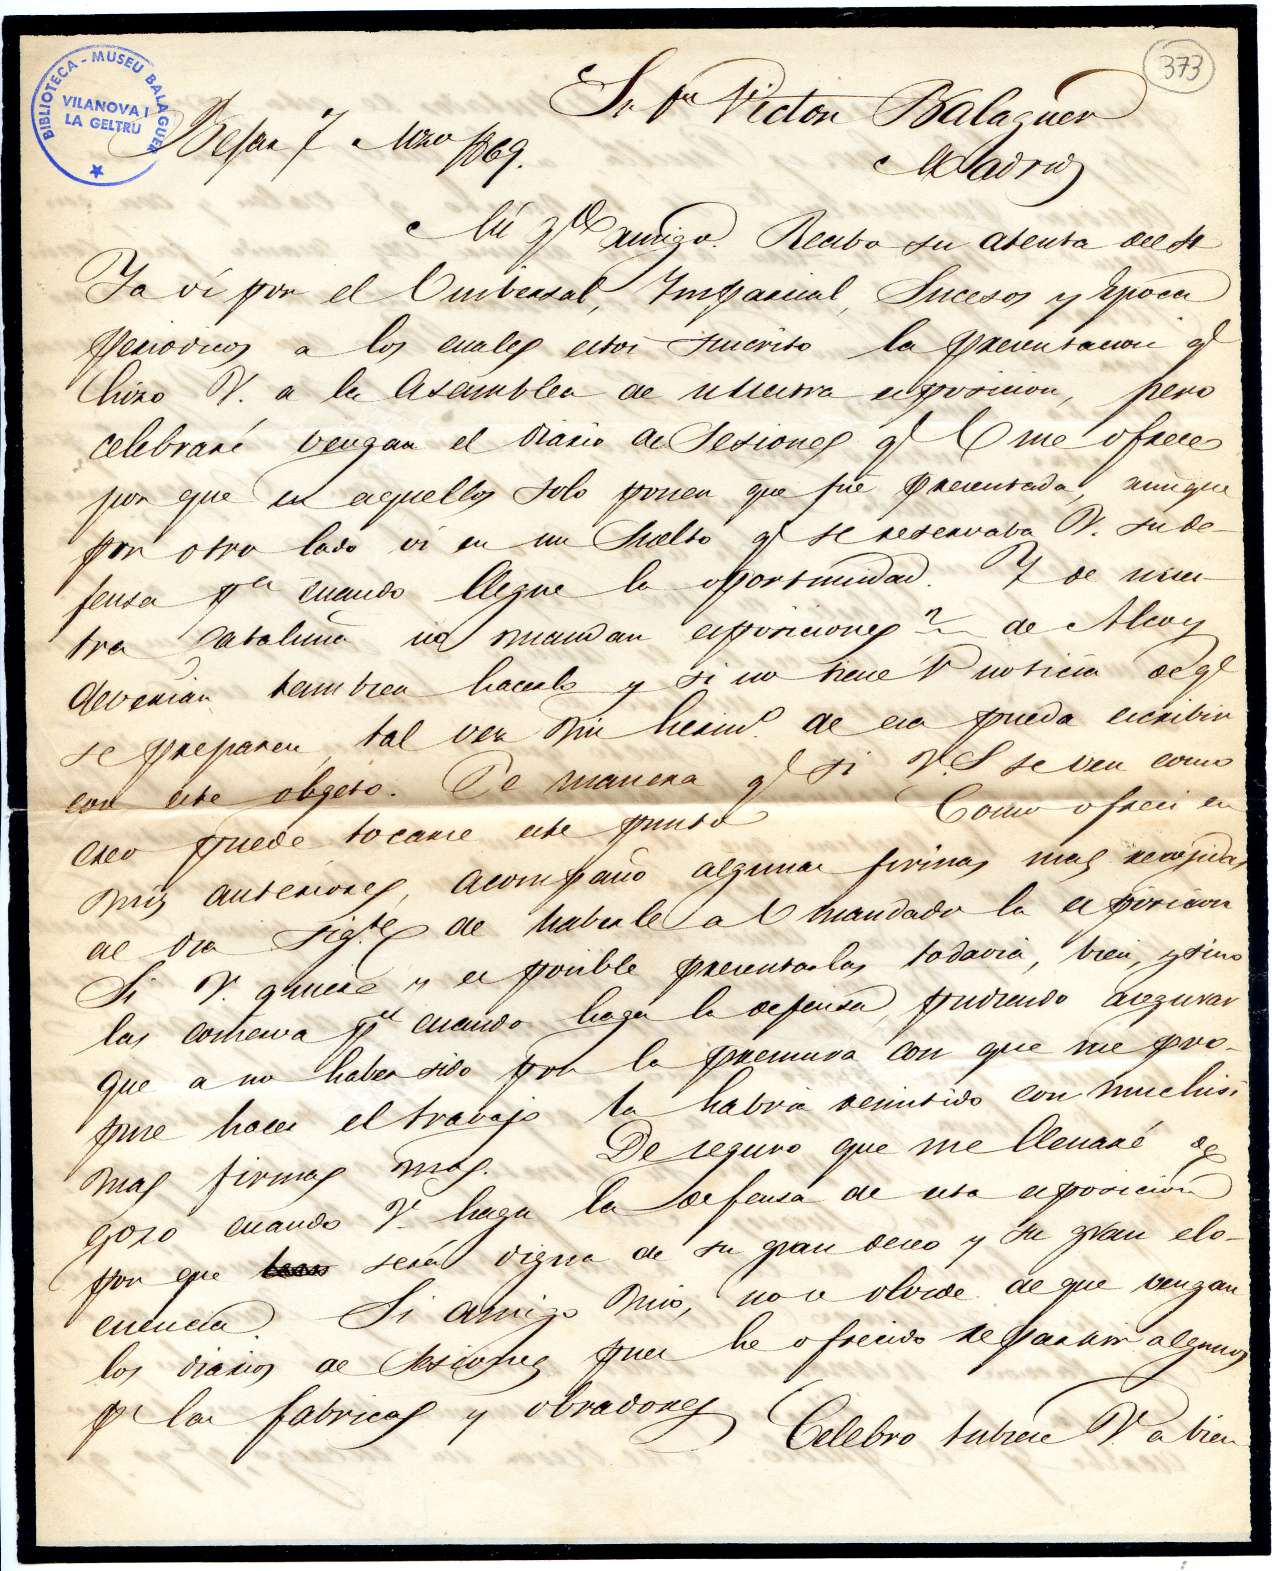 373
BIBLIOTECA - MUSEU BALAGUER
VILANOVA I
LA GELTRU
Sr Dn Victor Balaguer
Bejar 7 Mzo 1869.
Madrid
Mi qdo amigo. Recibo su atenta del 4
Ya ví por el Universal, Imparcial, Sucesos y Epoca
periodicos a los cuales estoi suscrito la presentacion q
hizo V. a la Asamblea de nuestra esposicion, pero
celebraré vengan el Diario de Sesiones q V me ofrece
por que en aquellos solo ponen que fué presentada, aunque
por otro lado vi en un Suelto q se reservaba V. su de-
fensa pa cuando llegue la oportunidad. Y de nues-
tra Cataluña no mandan esposiciones? de Alcoy
deverian tambien hacerlo y si no tiene V noticia de q
se preparen, tal vez mi hermo. de esa pueda escribir
con este objeto. De manera q si V.S se ven como
creo puede tocarse este punto Como ofreci en
mis anteriores, acompaño algunas firmas mas recojidas
al dia sigte de haberle a V mandado la esposicion
Si V. quiere y es posible presentarlas todavia, bien, y sino
las conserva pa cuando haga la defensa, pudiendo asegurar
que a no haber sido por la premura con que me pro-
puse hacer el trabajo la habria remitido con muchisi
mas firmas mas. De seguro que me llenaré de
gozo cuando V. haga la defensa de esta esposicion
por que será digna de su gran deseo y su gran elo-
cuencia. Si amigo mio, no olvide de que vengan
los diarios de Sesiones pues he ofrecido repartir algunos
pr las fabricas y obradores Celebro tubiese V. a bien